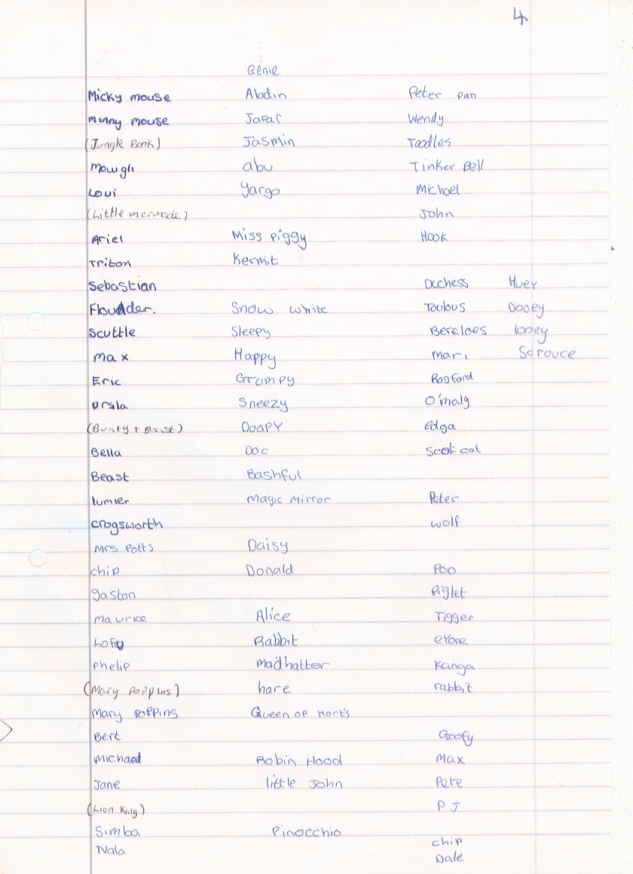 4
Genie
Micky mouse
minny mouse
(Jungle Book)
Mowgli
Loui
(Little mermade)
Ariel
Triton
Sebastian
Flounder.
Scuttle
max
Eric
ursla
(Beauty + Beast)
Bella
Beast
lumier
crogsworth
Mrs Potts
chip
gaston
Maurice
Lofu
Phelip
(Mary Poppins)
Mary Poppins
Bert
michael
Jane
(Lion King)
Simba
Nala
Aladin
Jafar
Jasmin
abu
Yargo
Miss Piggy
Kermit
Snow white
Sleepy
Happy
Grumpy
Sneezy
Doapy
Doc
Bashful
magic mirror
Daisy
Donald
Alice
Rabbit
madhatter
hare
Queen of Harts
Robin Hood
little John
Pinocchio
Peter pan
Wendy
Toodles
Tinker Bell
Michael
John
Hook
Duchess
Toulous
Bercloes
Mari
Roqford
O'maly
Edga
Scat cat
Peter
wolf
Poo
Piglet
Tigger
Kanga
rabbit
Goofy
Max
Pete
P J
chip
Dale
Huey
Dooey
looey
Scrouce